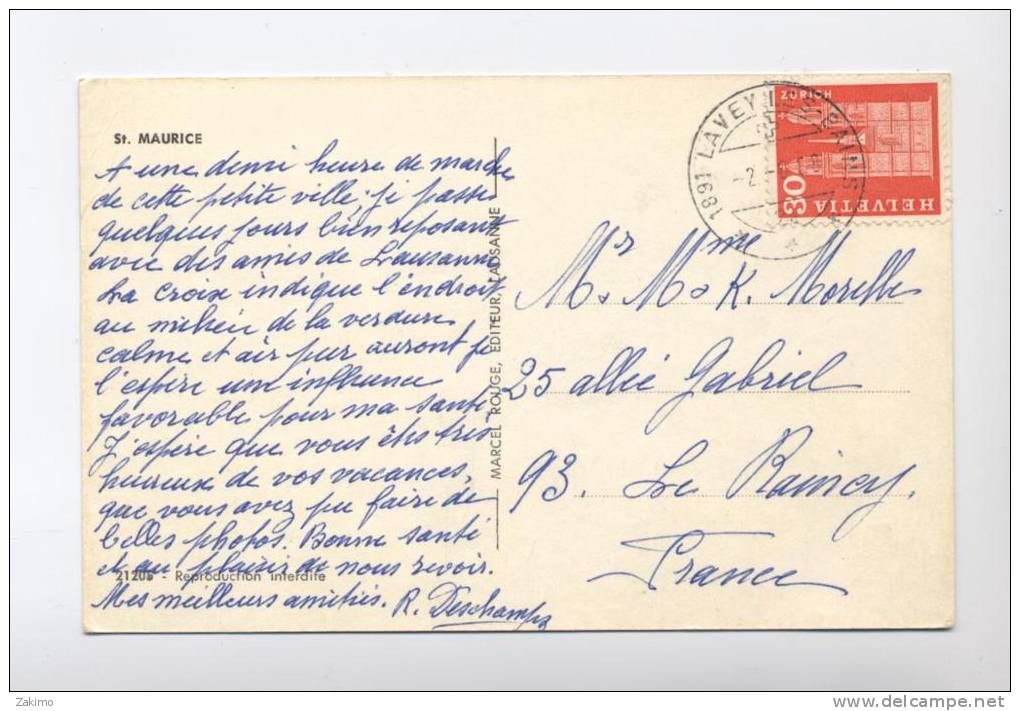 St. MAURICE
A une demi heure de marche
de cette petite ville; je passe
quelques jours bien reposant
avec des amies de Lausanne
La croix indique l'endroit
au milieu de la verdure,
calme et air pur auront je
l'espère une influence
favorable pour ma santé.
J'espère que vous êtes très
heureux de vos vacances,
que vous avez pu faire de
belles photos. Bonne santé
et au plaisir de nous revoir.
21205 - Reproduction interdite
Mes meilleurs amitiés. R. Deschamps
MARCEL ROUGE, EDITEUR, LAUSANNE
1891 LAVEY-LES-BAINS
ZÜRICH
30
HELVETIA
Mr Mme
M. M. K. Morelle
25 allée Gabriel
93. Le Raincy.
France
Zakimo
www.delcampe.net